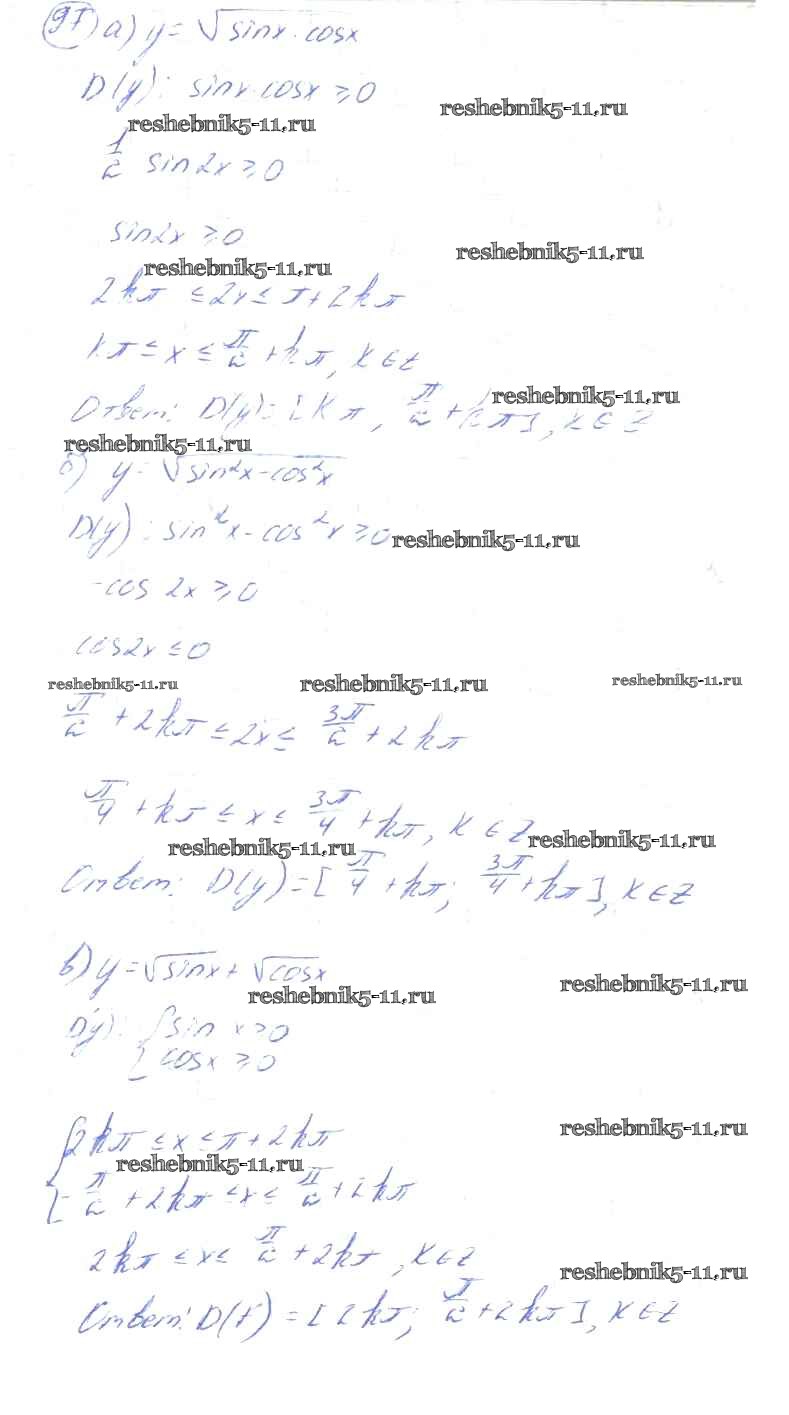 97) а) y = √sinx · cosx
D(y): sinx cosx ≥ 0
reshebnik5-11.ru
reshebnik5-11.ru
1/2 sin2x ≥ 0
sin2x ≥ 0
reshebnik5-11.ru
reshebnik5-11.ru
2kπ ≤ 2x ≤ π + 2kπ
kπ ≤ x ≤ π/2 + kπ, k ∈ Z
Ответ: D(y) = [kπ, π/2 + kπ], k ∈ Z
reshebnik5-11.ru
reshebnik5-11.ru
б) y = √sin²x - cos²x
D(y): sin²x - cos²x ≥ 0
reshebnik5-11.ru
-cos 2x ≥ 0
cos2x ≤ 0
reshebnik5-11.ru
reshebnik5-11.ru
reshebnik5-11.ru
π/2 + 2kπ ≤ 2x ≤ 3π/2 + 2kπ
π/4 + kπ ≤ x ≤ 3π/4 + kπ, k ∈ Z
reshebnik5-11.ru
reshebnik5-11.ru
Ответ: D(y) = [π/4 + kπ; 3π/4 + kπ], k ∈ Z
в) y = √sinx + √cosx
reshebnik5-11.ru
reshebnik5-11.ru
D(y): { sin x ≥ 0
cosx ≥ 0
reshebnik5-11.ru
{ 2kπ ≤ x ≤ π + 2kπ
reshebnik5-11.ru
-π/2 + 2kπ ≤ x ≤ π/2 + 2kπ
2kπ ≤ x ≤ π/2 + 2kπ, k ∈ Z
reshebnik5-11.ru
Ответ: D(f) = [2kπ; π/2 + 2kπ], k ∈ Z